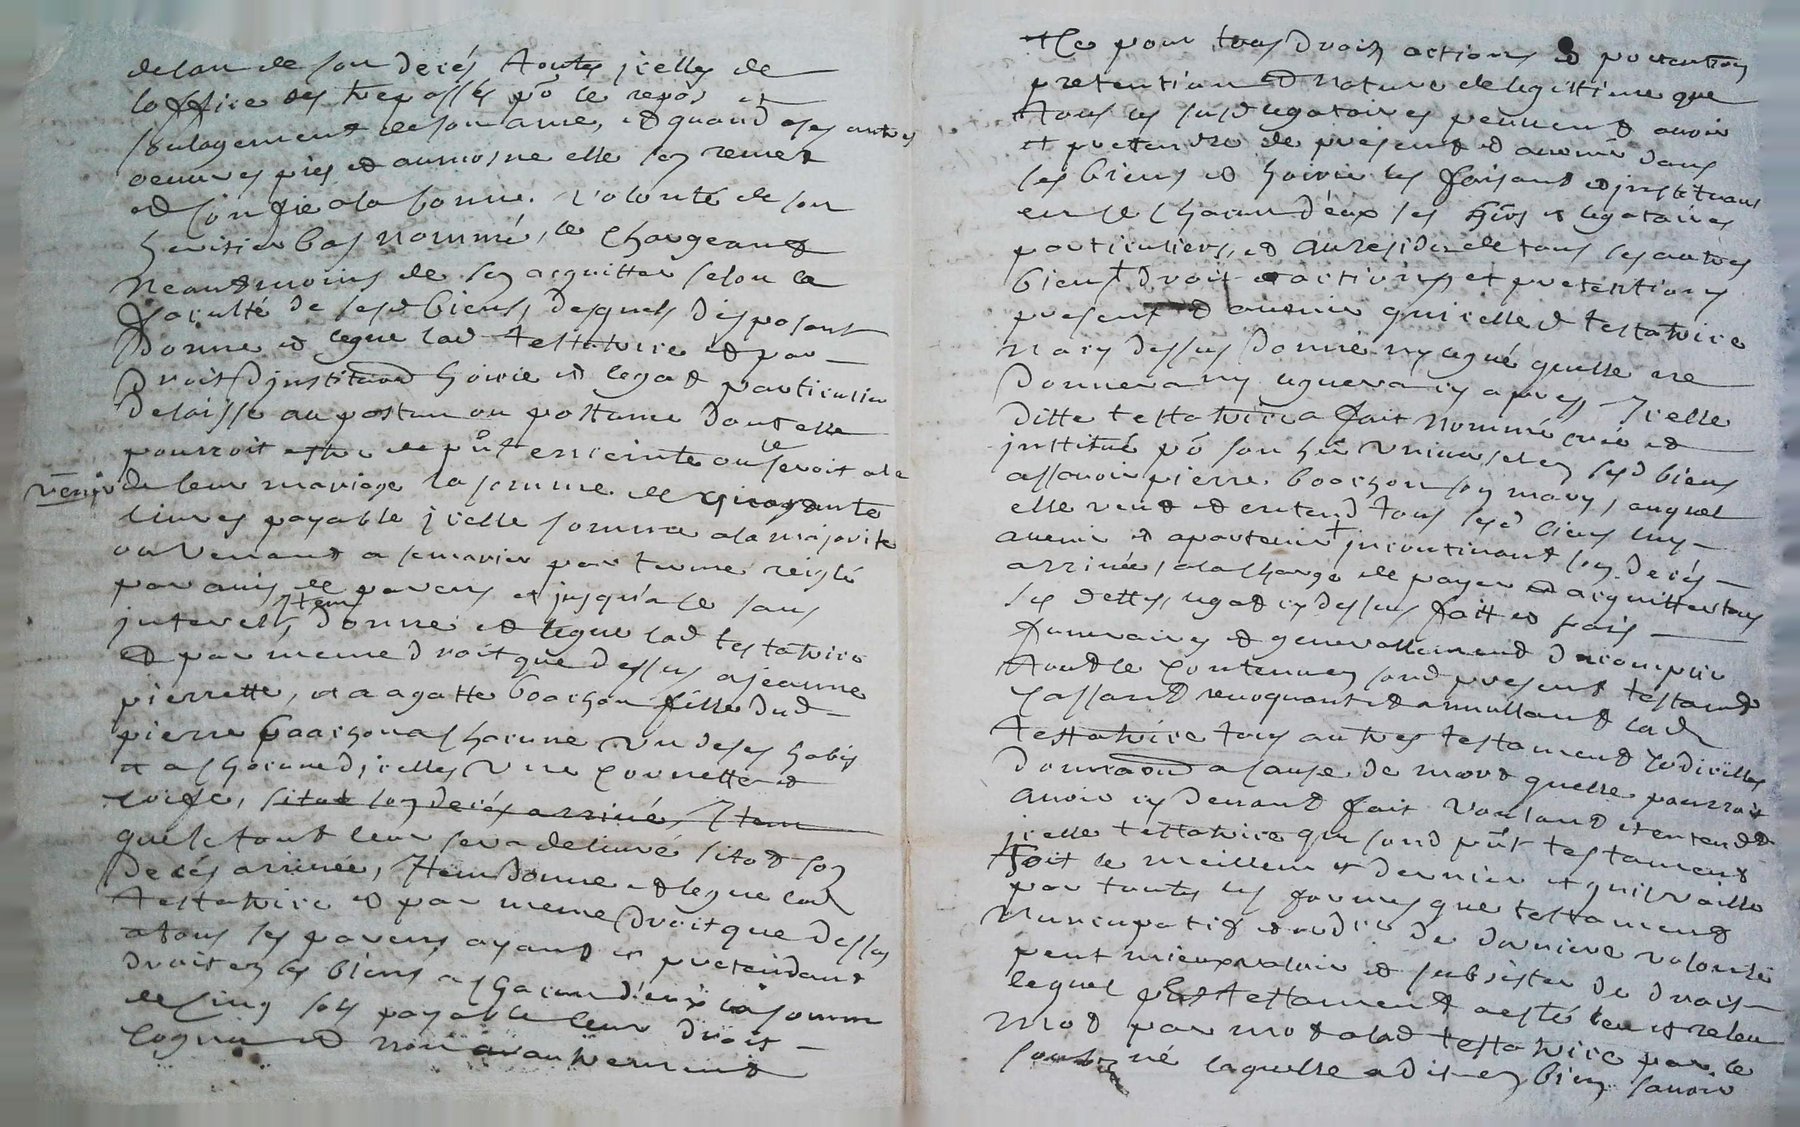 delan de son decés toutes jcelles de
loffice des trepassés po le repos et
soulagement de son ame, et quand a ses autres
oeuvres pies et aumosne elle sen remet
et confie a la bonne volonté de son
heritier bas nommé, le chargeant
neantmoins de sen acquitter selon la
faculté de sesd biens, desquels disposant
donne et legue lad testatrice et par
droit djnstitution hoirie et legat particulier
delaisse au postume ou postume dont elle
pourroit estre de pnt enceinte ou seroit a le
venir de leur mariage la somme de cinquante
livres payable jcelle somme a la majorité
ou venant a se marier par terme reiglé
par avis de parens et jusqu'a ce sans
jnterest, jtem donne et legue lad testatrice
et par meme droit que dessus a jeanne
pierrette, et a agatte boachon fille dud
pierre boachon a chacune un de ses habis
et a chacune djcelles une cornette et
coife, sitot son decés arrivé, Jtem
que le tout leur sera delivré sitot son
decés arrivée, Jtem donne et legue lad
testatrice et par meme droit que dessus
a tous ses parens ayant et pretendant
droit en ses biens a chacun d'eux la somme
de cinq sols payable leur droit
cognu et non autrement
et ce pour tous droits actions et pretentions
pretention et nature de legittime que
tous les susd legataires peuvent avoir
et pretendre de present et avenir dans
ses biens et hoirie les faisant et jnstituant
en ce chacun d'eux ses hers et legataires
particuliers, et au residu de tous ses autres
biens droit et actions et pretentions
present et avenir qu'icelle d testatrice
na cy dessus donné ny legué quelle ne
donnera ny leguera cy apres Jcelle
ditte testatrice a fait nommé créé et
jnstitué po son her universel en sesd biens
assavoir pierre boachon son mary, auquel
elle veut et entend tous sesd biens luy
avenir et apartenir jncontinant son decés
arrivée, a la charge de payer et acquitter tous
ses dettes, legat cy dessus fait et frais
funeraires et generallement daccomplir
tout le contenu en sond present testament
cassant revoquant et annullant lad
testatrice tous autres testament codicilles
donnaon a cause de mort quelle pourroit
avoir cy devant fait voulant et entend
jcelle testatrice que sond pnt testament
soit le meilleur et dernier et qui vaille
par toutes les formes que testament
nuncupatif et ordre de derniere volonté
peut mieux valoir et subsister de droit
lequel pnt testament a esté leu et releu
mot par mot a lad testatrice par le
soubsigné laquelle a dit en bien savoir